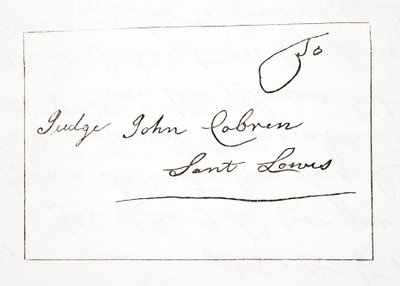 To
Judge John Cobren
Sant Lowis